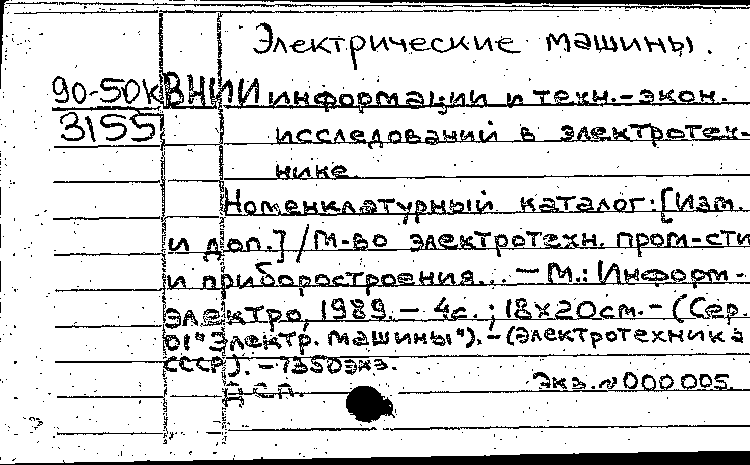 Электрические машины.
90-50к ВНИИ информации и техн.-экон.
3155 исследований в электротех-
нике.
Номенклатурный каталог: [Изм.
и доп.] / М-во электротехн. пром-сти
и приборостроения... — М.: Информ-
электро, 1989. — 4с.; 18х20см. - (Сер.
01 "Электр. машины"). - (Электротехника
СССР). - 1350экз.
ДСП. Экз. № 000005.